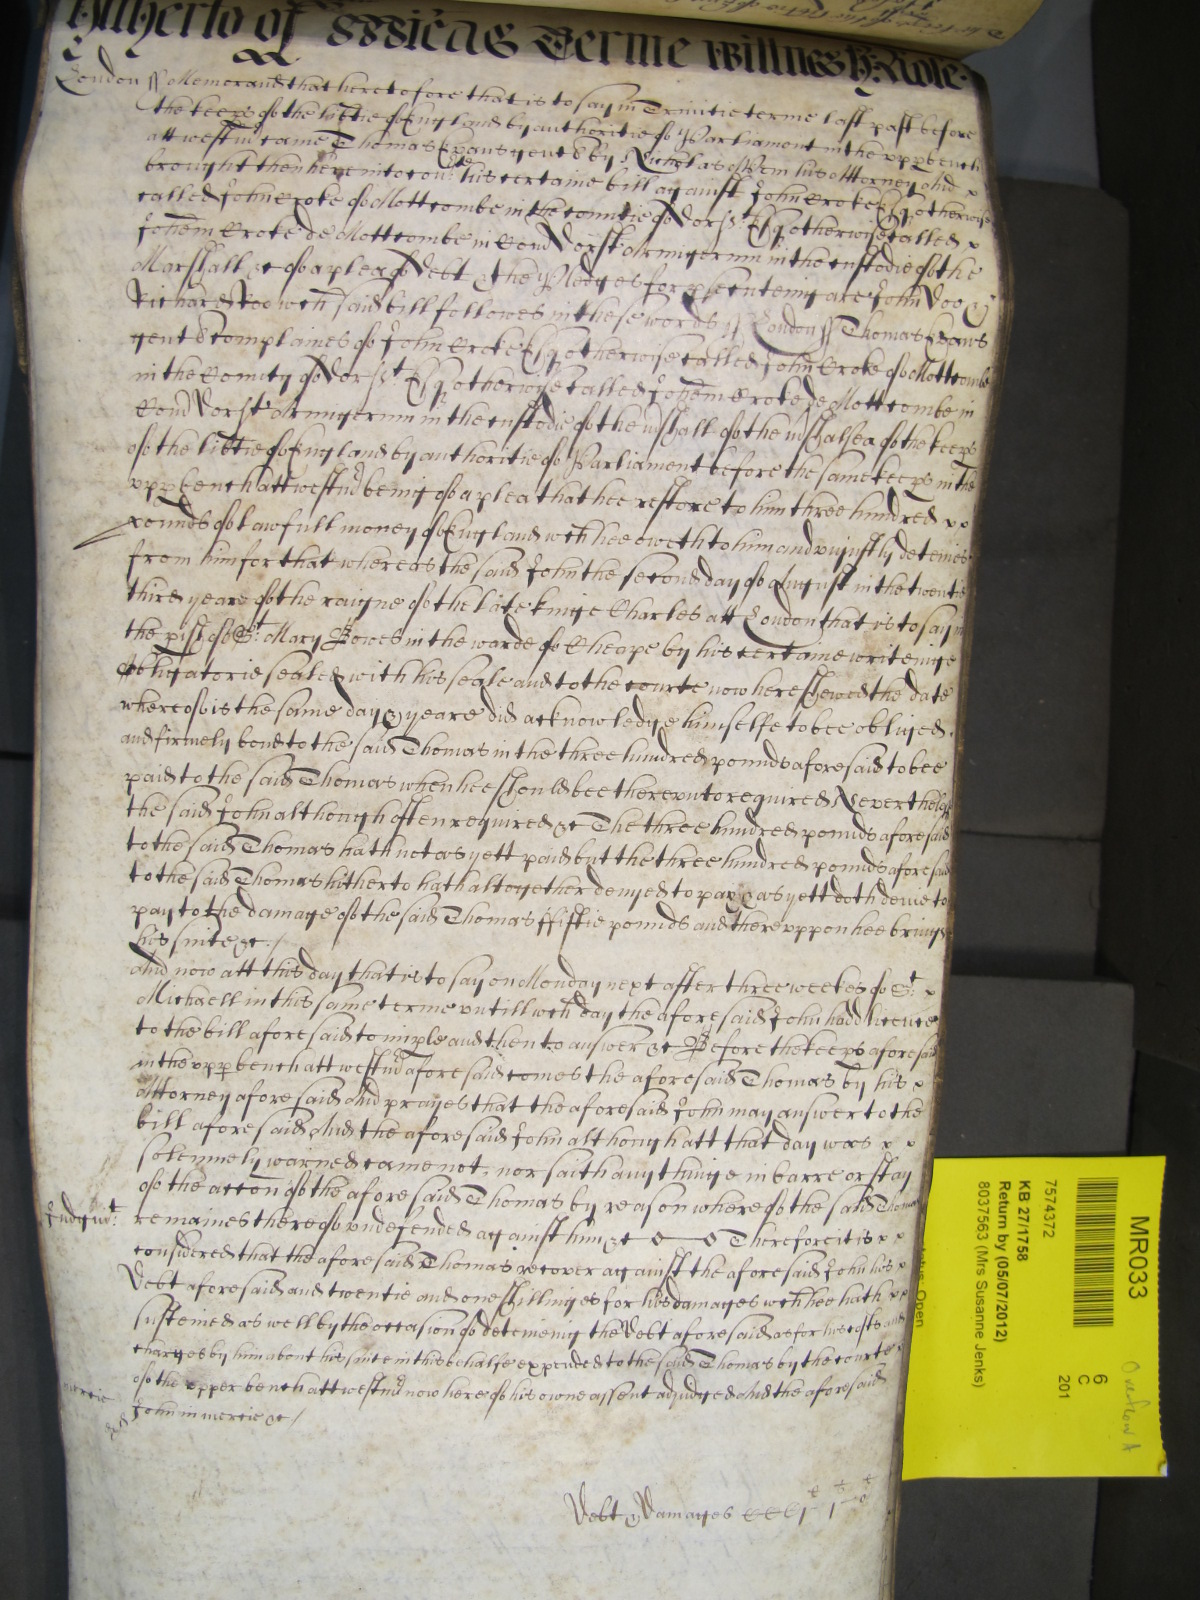 Hitherto of
Terme
London ss Memorand that heretofore that is to say in Trinitie terme last past before
the keeps of the libtie of England by authoritie of Parliament in the vpp bench
att westm came Thomas gent by Nicholas his Attorney And x
brought then here into court his certaine bill against John Croke Esq otherwise
called John Croke of Mottcombe in the countie of Dorst Esq otherwise called x
Johem Croke de Mottcombe in Com Dorst Armigerum in the custodie of the
Marshall &c of a plea of Debt & the Pledges for psecuteing are John Doo &
Richard Roo wch said bill followes in these words ss London ss Thomas
gent complaines of John Croke Esq otherwise called John Croke of Mottcombe
in the County of Dorst Esq otherwise called Johem Croke de Mottcombe in
Com Dorst Armigerum in the custodie of the mshall of the mshalsea of the keeps
of the libtie of England by authoritie of Parliament before the same keeps in the
vpp bench att westm being of a plea that hee restore to him three hundred x x
pounds of lawfull money of England wch hee oweth to him and vniustly deteines
from him for that whereas the said John the second day of August in the twentie
third yeare of the raigne of the late kinge Charles att London that is to say in
the pish of St Mary Bowes in the warde of Cheape by his certaine writeinge
obligatorie sealed with his seale and to the courte now here shewed the date
whereof is the same day & yeare did acknowledge himselfe to bee obliged
and firmely bond to the said Thomas in the three hundred pounds aforesaid to bee
paid to the said Thomas when hee should bee therevnto required Neverthelesse
the said John although often required &c The three hundred pounds aforesaid
to the said Thomas hath not as yett paid but the three hundred pounds aforesaid
to the said Thomas hitherto hath altogether denyed to pay & as yett doth denie to
pay to the damage of the said Thomas ffiftie pounds and therevppon hee brings
his suite &c /
And now att this day that is to say on Monday next after three weekes of St x
Michaell in this same terme vntill wch day the aforesaid John hadd licence
to the bill aforesaid to imple and then to answer &c Before the keeps aforesaid
in the vpp bench att westm aforesaid comes the aforesaid Thomas by his x
Attorney aforesaid And prayes that the aforesaid John may answer to the
bill aforesaid And the aforesaid John although att that day was x x
solemnely warned came not, nor saith any thinge in barre or stay
of the accon of the aforesaid Thomas by reason whereof the said Thomas
Judgmt
remaines thereof vndefended against him &c Therefore it is x x
considered that the aforesaid Thomas recover against the aforesaid John his x
Debt aforesaid and twentie and one shillinges for his damages wch hee hath x x
susteined as well by the occasion of deteineing the Debt aforesaid as for his costs and
charges by him about his suite in this behalfe expended to the said Thomas by the courte
of the vpper bench att westm now here of his owne assent adiudged And the aforesaid
mercie
John in mercie &c /
Debt & Damages
MR033
6
C
201
7574372
KB 27/1758
Return by (05/07/2012)
8037563 (Mrs Susanne Jenks)
Open
Overflow A